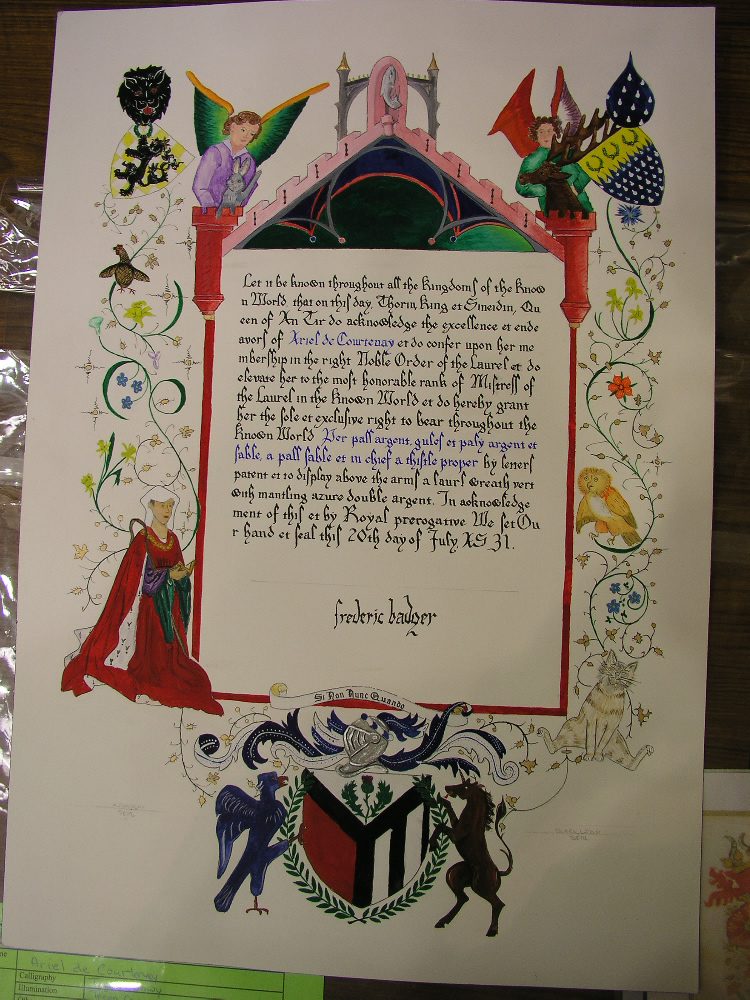 Let it be known throughout all the kingdoms of the know
n World that on this day, Thorin King et Sineidin, Qu
een of An Tir do acknowledge the excellence et ende
avors of Ariel de Courtenay et do confer upon her me
mbership in the right Noble Order of the Laurel et do
elevate her to the most honorable rank of Mistress of
the Laurel in the Known World et do hereby grant
her the sole et exclusive right to bear throughout the
known World Per pall argent, gules et paly argent et
sable, a pall sable et in chief a thistle proper by letters
patent et to display above the arms a laurel wreath vert
with mantling azure double argent. In acknowledge
ment of this et by Royal prerogative We set Ou
r hand et seal this 20th day of July, XS 31.
frederic badger
Si Non Nunc Quando
Ariel de Courtenay
Calligraphy
Illumination